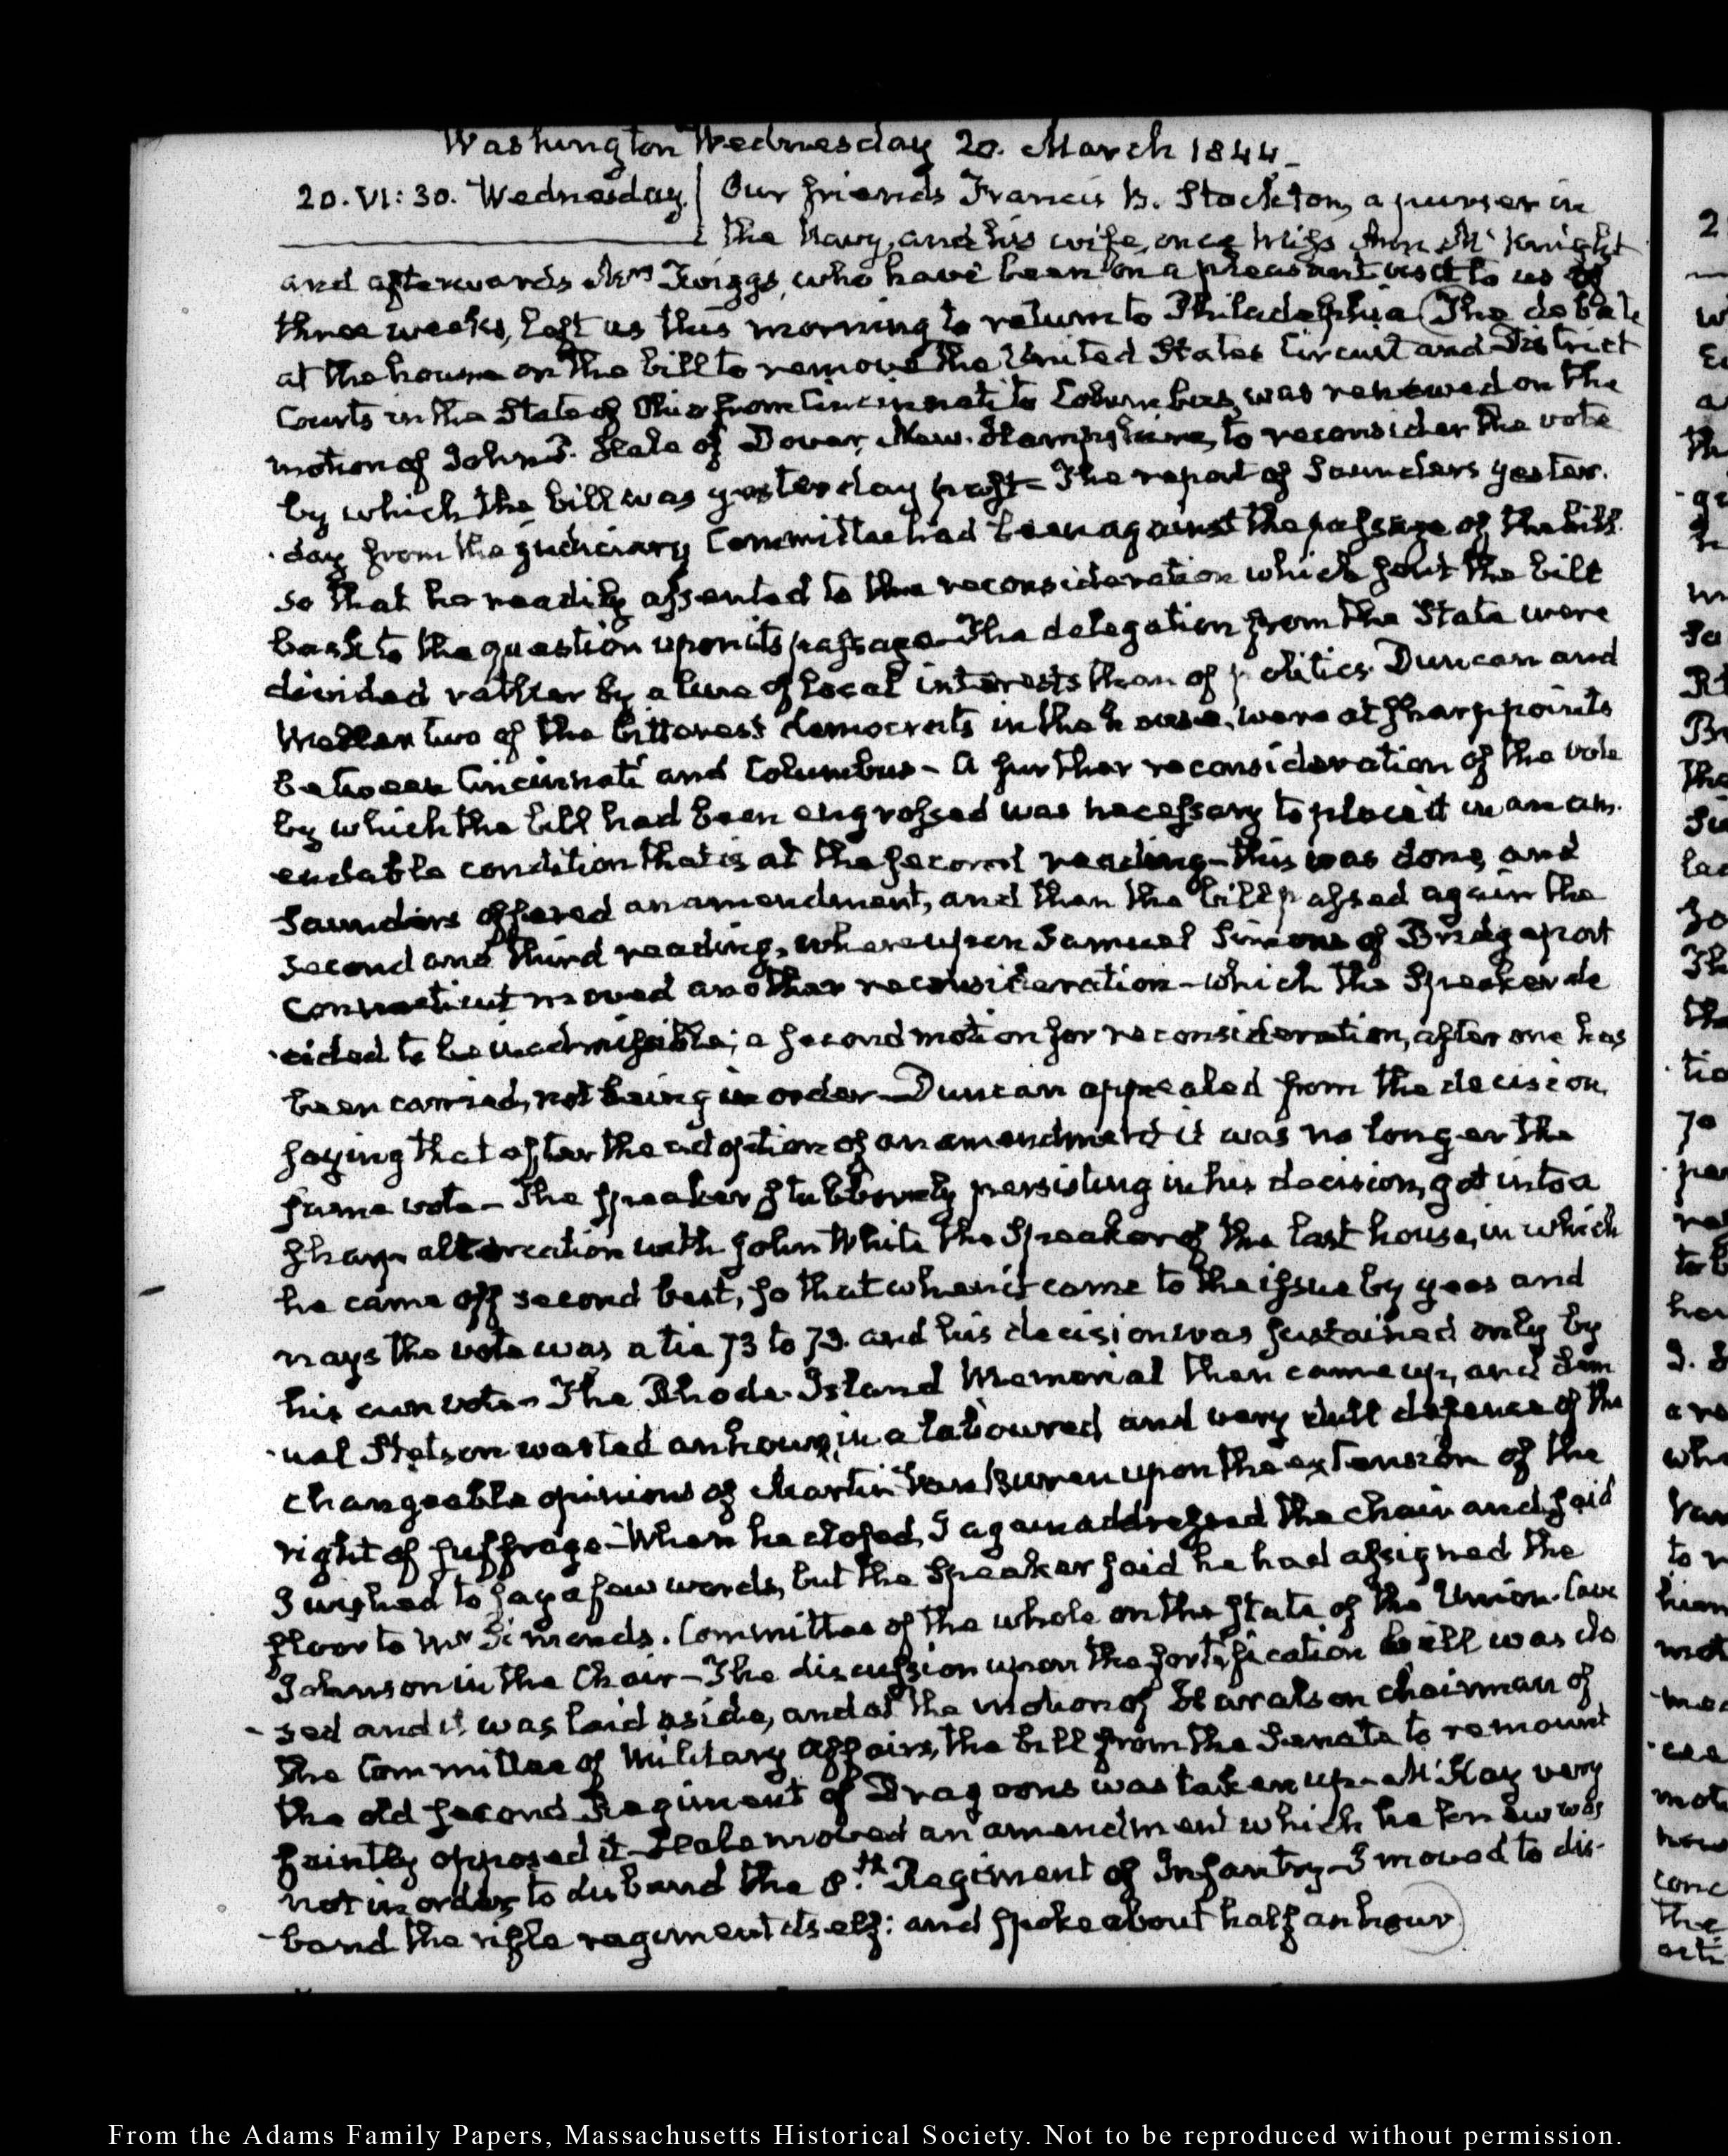 Washington Wednesday 20. March 1844.
20. VI: 30. Wednesday. Our friends Francis B. Stockton, a purser in
the Navy, and his wife, once Miss Ann McKnight
and afterwards Mrs Twiggs, who have been on a pleasant visit to us of
three weeks, left us this morning to return to Philadelphia The debate
at the house on the bill to remove the United States Circuit and District
Courts in the State of Ohio from Cincinnati to Columbus, was renewed on the
motion of John P. Hale of Dover, New-Hampshire, to reconsider the vote
by which the bill was yesterday past- The report of Saunders yester-
day from the Judiciary Committee had been against the passage of the bill
so that he readily assented to the reconsideration which sent the bill
back to the question upon its passage- The delegation from the State were
divided rather by a line of local interests than of politics. Duncan and
Weller two of the bitterest democrats in the house, were at sharp points
between Cincinnati and Columbus- A further reconsideration of the vote
by which the bill had been engrossed was necessary to place it in an am-
endable condition that is at the second reading- this was done, and
Saunders offered an amendment, and then the bill passed again the
second and third reading, whereupon Samuel Simons of Bridgeport
Connecticut moved another reconsideration- which the Speaker de
cided to be inadmissible; a second motion for reconsideration, after one has
been carried, not being in order- Duncan appealed from the decision,
saying that after the adoption of an amendment it was no longer the
same vote- The Speaker stubbornly persisting in his decision, got into a
sharp altercation with John White the Speaker of the last house, in which
he came off second best, so that when it came to the issue by yeas and
nays the vote was a tie 73 to 73. and his decision was sustained only by
his own vote- The Rhode-Island Memorial then came up, and Lem
uel Stetson wasted an hour, in a laboured and very dull defence of the
changeable opinions of Martin Van Buren upon the extension of the
right of suffrage- When he closed, I again addressed the chair and said
I wished to say a few words, but the Speaker said he had assigned the
floor to Mr Simonds. Committee of the whole on the State of the Union. Cave
Johnson in the Chair- The discussion upon the fortification bill was clo
sed and it was laid aside, and at the motion of Haralson chairman of
the Committee of Military affairs, the bill from the Senate to remount
the old second Regiment of Dragoons was taken up- McKay very
faintly opposed it- Hale moved an amendment which he knew was
not in order, to disband the 8th Regiment of Infantry- I moved to dis-
band the rifle regiment itself: and spoke about half an hour
From the Adams Family Papers, Massachusetts Historical Society. Not to be reproduced without permission.